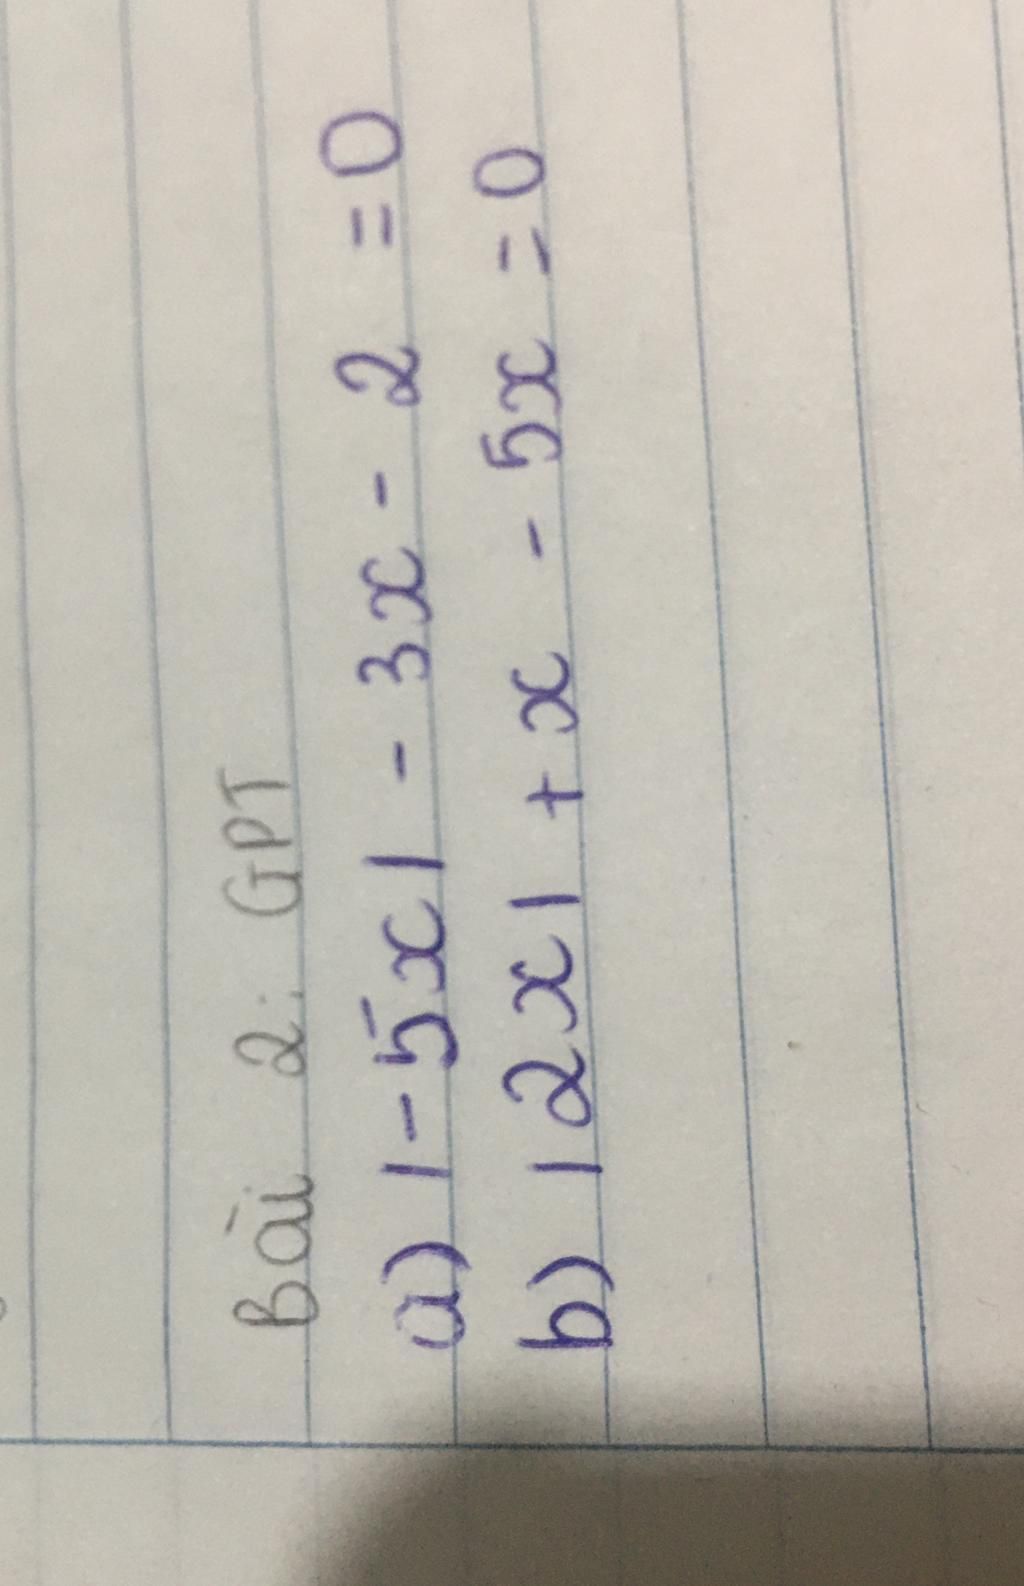 Bài 2: GPT
a) |-5x| - 3x - 2 = 0
b) |2x| + x - 5x = 0